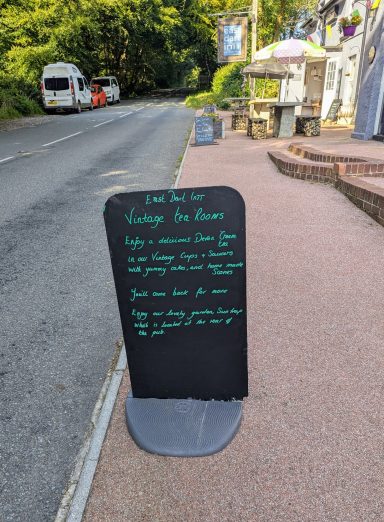 east
dart
inn
East Dart Inn
Vintage tea Rooms
Enjoy a delicious Devon Cream
tea
in our Vintage Cups + Saucers
with yummy cakes, and home made
Scones
You'll come back for more
Enjoy our lovely garden, Sun trap
which is located at the rear of
the pub.